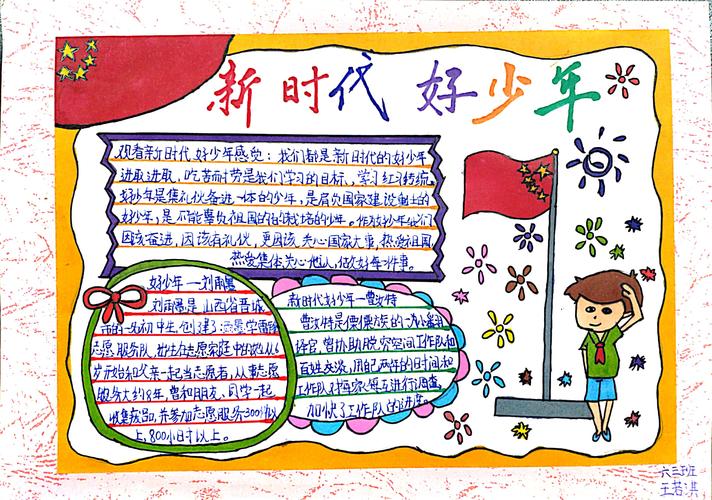 新时代好少年
观看新时代好少年感觉：我们都是新时代的好少年
进取进取，吃苦而劳是我们学习的目标，学习红习传统
好少年是集礼仪奋进一体的少年，是肩负国家建设制土的
好少年，是不能辜负祖国的的栽培的少年。作为好少年我们
因该奋进，因该有礼仪，更因该关心国家大事，热爱祖国
热爱集体，关心他人，做好每一件事。
好少年——刘雨墨
刘雨墨是山西省晋城
市的一名初中生，创建了
志愿服务队，出生在志愿家庭中的她从6
岁开始和父亲一起当志愿者，从事志愿
服务大约8年，曾和朋友、同学一起
并参加志愿服务300次以
上，800小时以上。
新时代好少年—曹汝特
曹汝特是傈僳族的一次小翻
译官，曾协助脱贫空间工作队和
百姓交谈，用自己两年的时间和
工作队对再家每五进行调查，
加快了工作队的进度。
六三班
王若淇